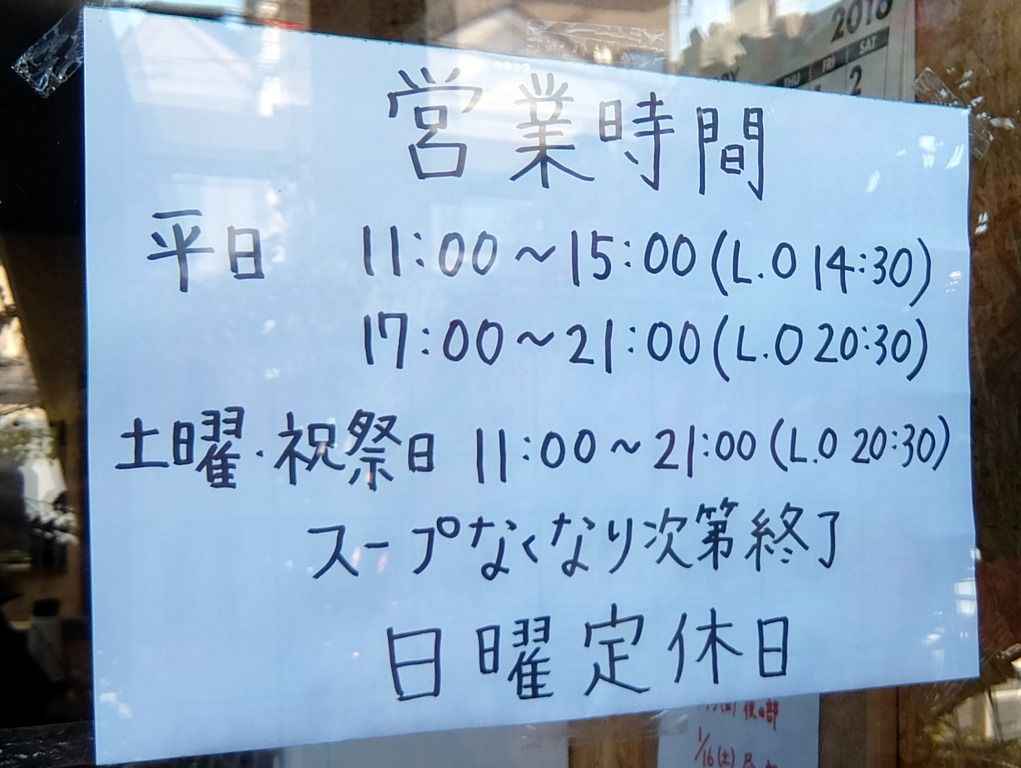 2016
THU FRI SAT
2
営業時間
平日 11:00～15:00(L.O 14:30)
17:00～21:00(L.O 20:30)
土曜・祝祭日 11:00～21:00(L.O 20:30)
スープなくなり次第終了
日曜定休日
1/16(土)